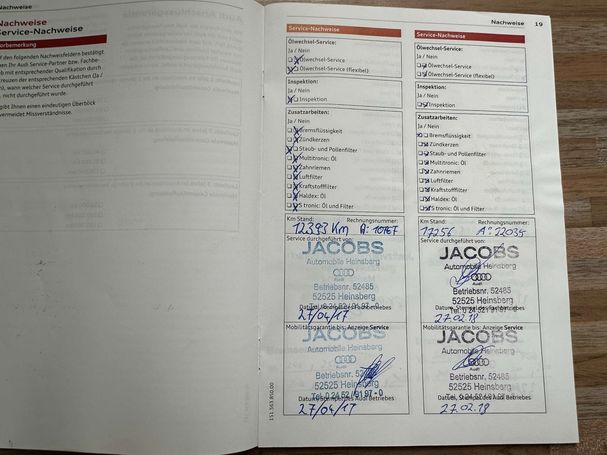 Nachweise
Nachweise
Service-Nachweise
Vorbemerkung
den folgenden Nachweisfeldern bestätigt
Ihr Audi Service-Partner bzw. Fachbe-
mit entsprechender Qualifikation durch
der entsprechenden Kästchen (Ja /
wann welcher Service durchgeführt
nicht durchgeführt wurde.
gibt Ihnen einen eindeutigen Überblick
vermeidet Missverständnisse.
Nachweise 19
Service-Nachweise
Ölwechsel-Service:
Ja / Nein
Ölwechsel-Service
Ölwechsel-Service (flexibel)
Inspektion:
Ja / Nein
Inspektion
Zusatzarbeiten:
Ja / Nein
Bremsflüssigkeit
Zündkerzen
Staub- und Pollenfilter
Multitronic: Öl
Zahnriemen
Luftfilter
Kraftstofffilter
Haldex: Öl
S tronic: Öl und Filter
Km Stand: Rechnungsnummer:
12393 Km A: 10767
Service durchgeführt von:
JACOBS
Automobile Heinsberg
Audi
Betriebsnr. 52485
52525 Heinsberg
Tel. 0 24 52 / 91 97 - 0
27/04/17
Mobilitätsgarantie bis: Anzeige Service
JACOBS
Automobile Heinsberg
Audi
Betriebsnr. 52485
52525 Heinsberg
Tel. 0 24 52 / 91 97 - 0
Datum, Stempel des Audi Betriebes
27/04/17
Service-Nachweise
Ölwechsel-Service:
Ja / Nein
Ölwechsel-Service
Ölwechsel-Service (flexibel)
Inspektion:
Ja / Nein
Inspektion
Zusatzarbeiten:
Ja / Nein
Bremsflüssigkeit
Zündkerzen
Staub- und Pollenfilter
Multitronic: Öl
Zahnriemen
Luftfilter
Kraftstofffilter
Haldex: Öl
S tronic: Öl und Filter
Km Stand: Rechnungsnummer:
17256 A° 22035
Service durchgeführt von:
JACOBS
Automobile Heinsberg
Audi
Betriebsnr. 52485
52525 Heinsberg
Tel. 0 24 52 / 91 97 - 0
Datum, Stempel des Fachbetriebes
27.02.18
Mobilitätsgarantie bis: Anzeige Service
JACOBS
Automobile Heinsberg
Audi
Betriebsnr. 52485
52525 Heinsberg
Datum, Stempel des Audi Betriebes
27.02.18
151.563.850.00